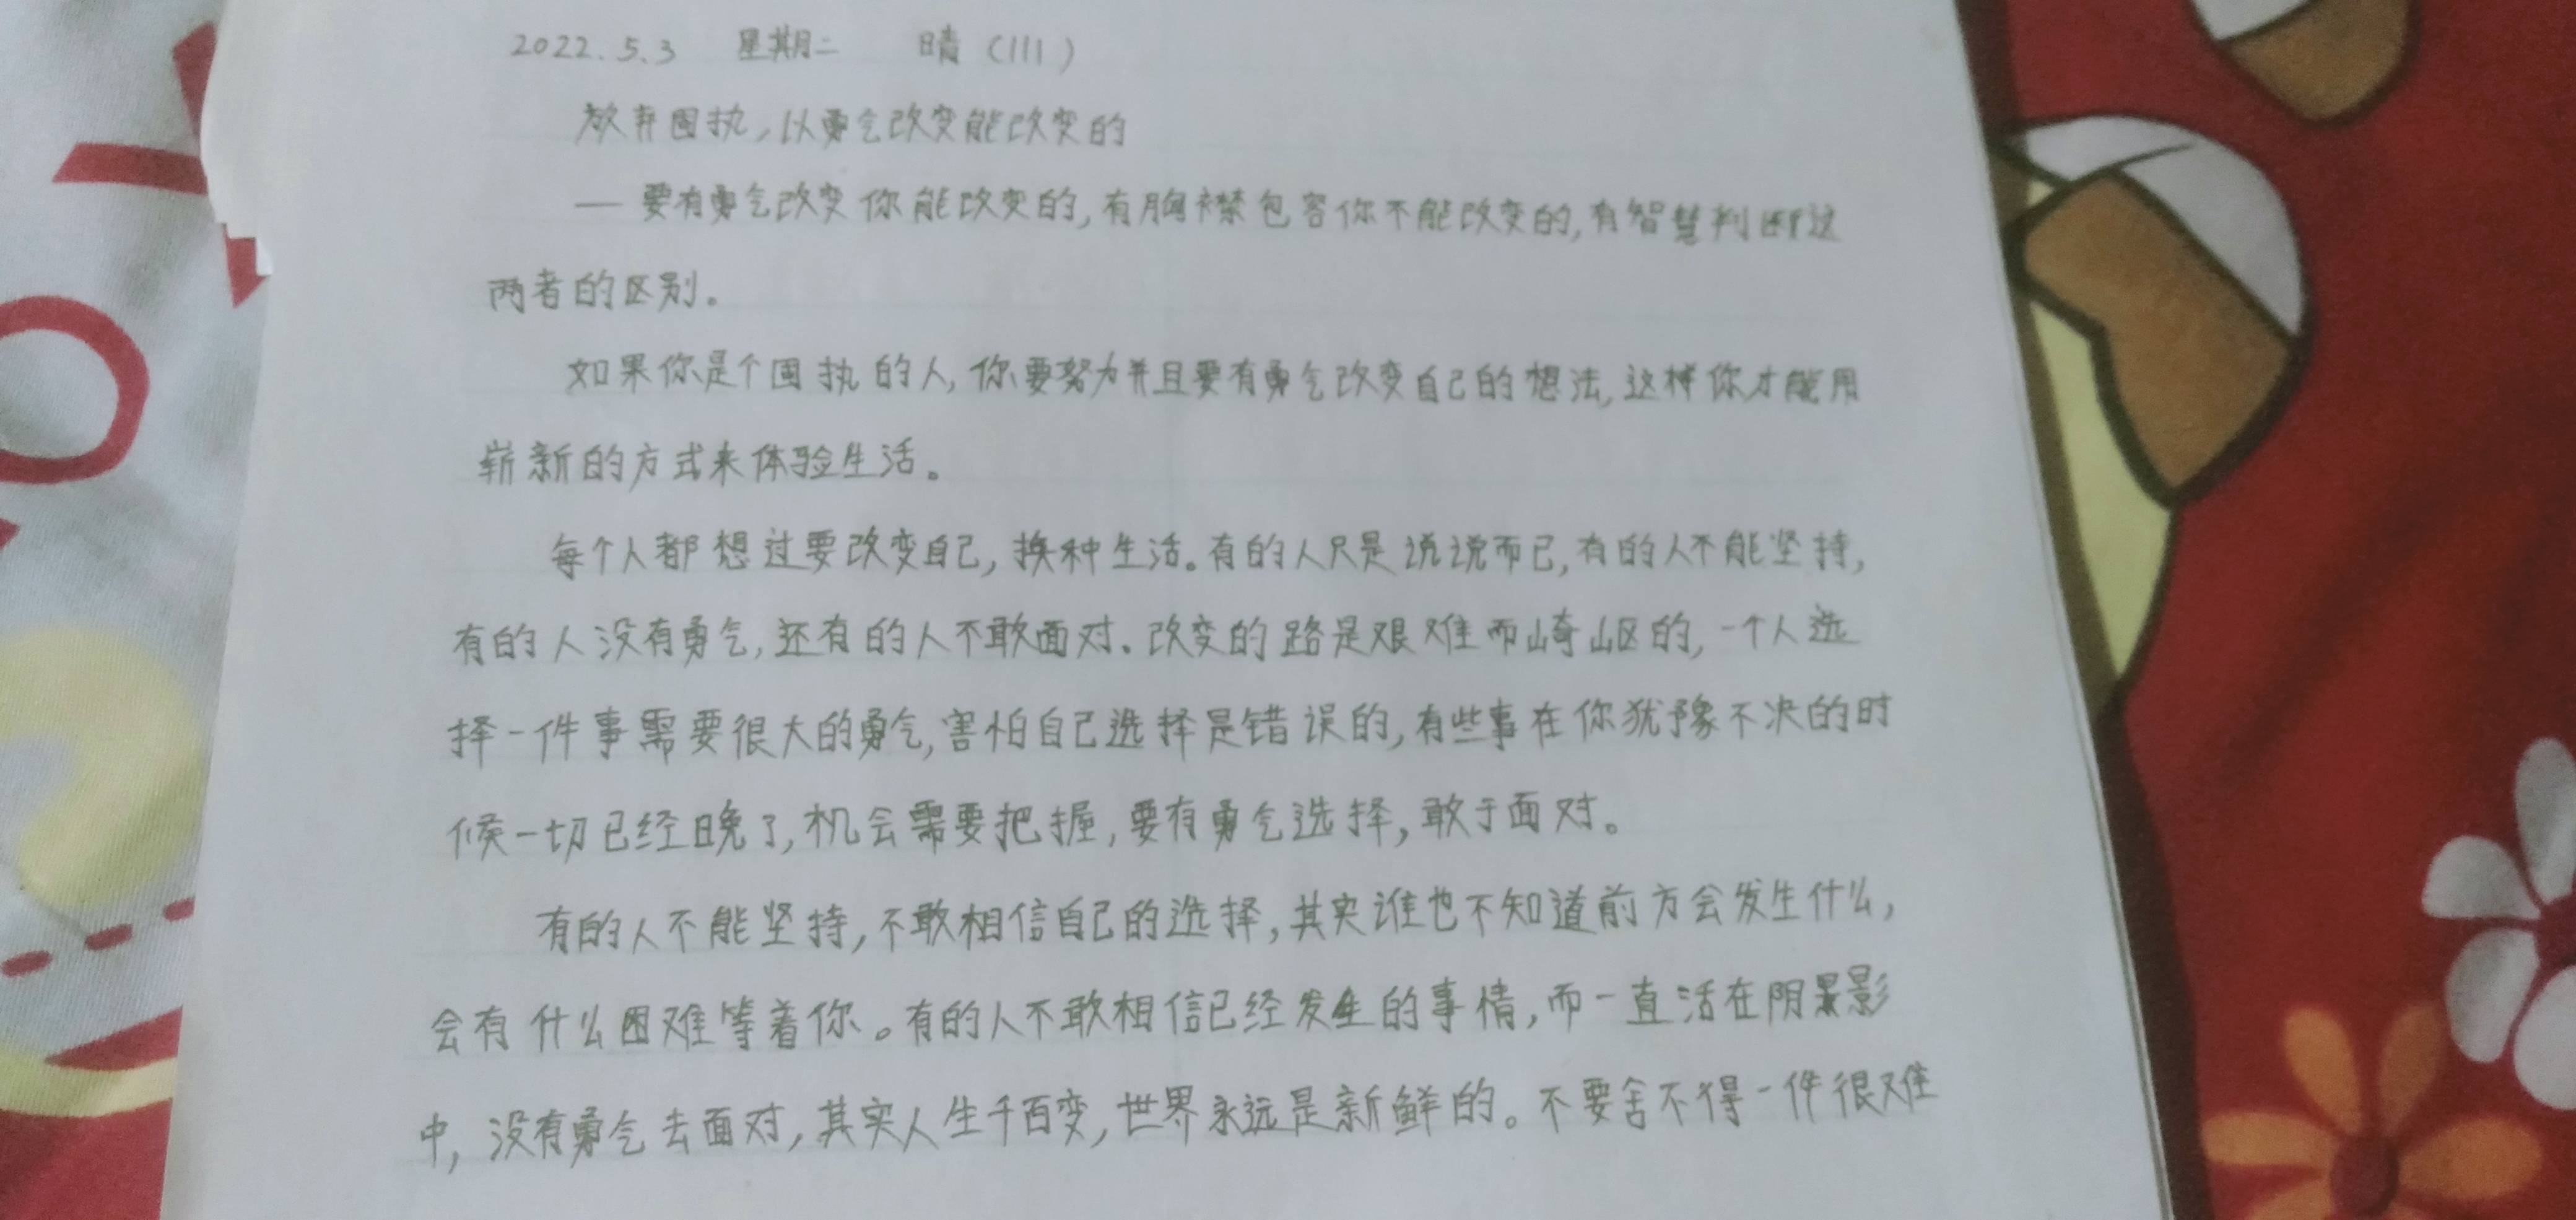 2022.5.3 星期二 晴 (111)
放弃固执,以勇气改变能改变的
— 要有勇气改变你能改变的,有胸襟包容你不能改变的,有智慧判断这
两者的区别。
如果你是个固执的人,你要努力并且要有勇气改变自己的想法,这样你才能用
崭新的方式来体验生活。
每个人都想过要改变自己,换种生活。有的人只是说说而已,有的人不能坚持,
有的人没有勇气,还有的人不敢面对.改变的路是艰难而崎岖的,一个人选
择一件事需要很大的勇气,害怕自己选择是错误的,有些事在你犹豫不决的时
候一切已经晚了,机会需要把握,要有勇气选择,敢于面对。
有的人不能坚持,不敢相信自己的选择,其实谁也不知道前方会发生什么,
会有什么困难等着你。有的人不敢相信已经发生的事情,而一直活在阴影
中,没有勇气去面对,其实人生千百变,世界永远是新鲜的。不要舍不得一件很难